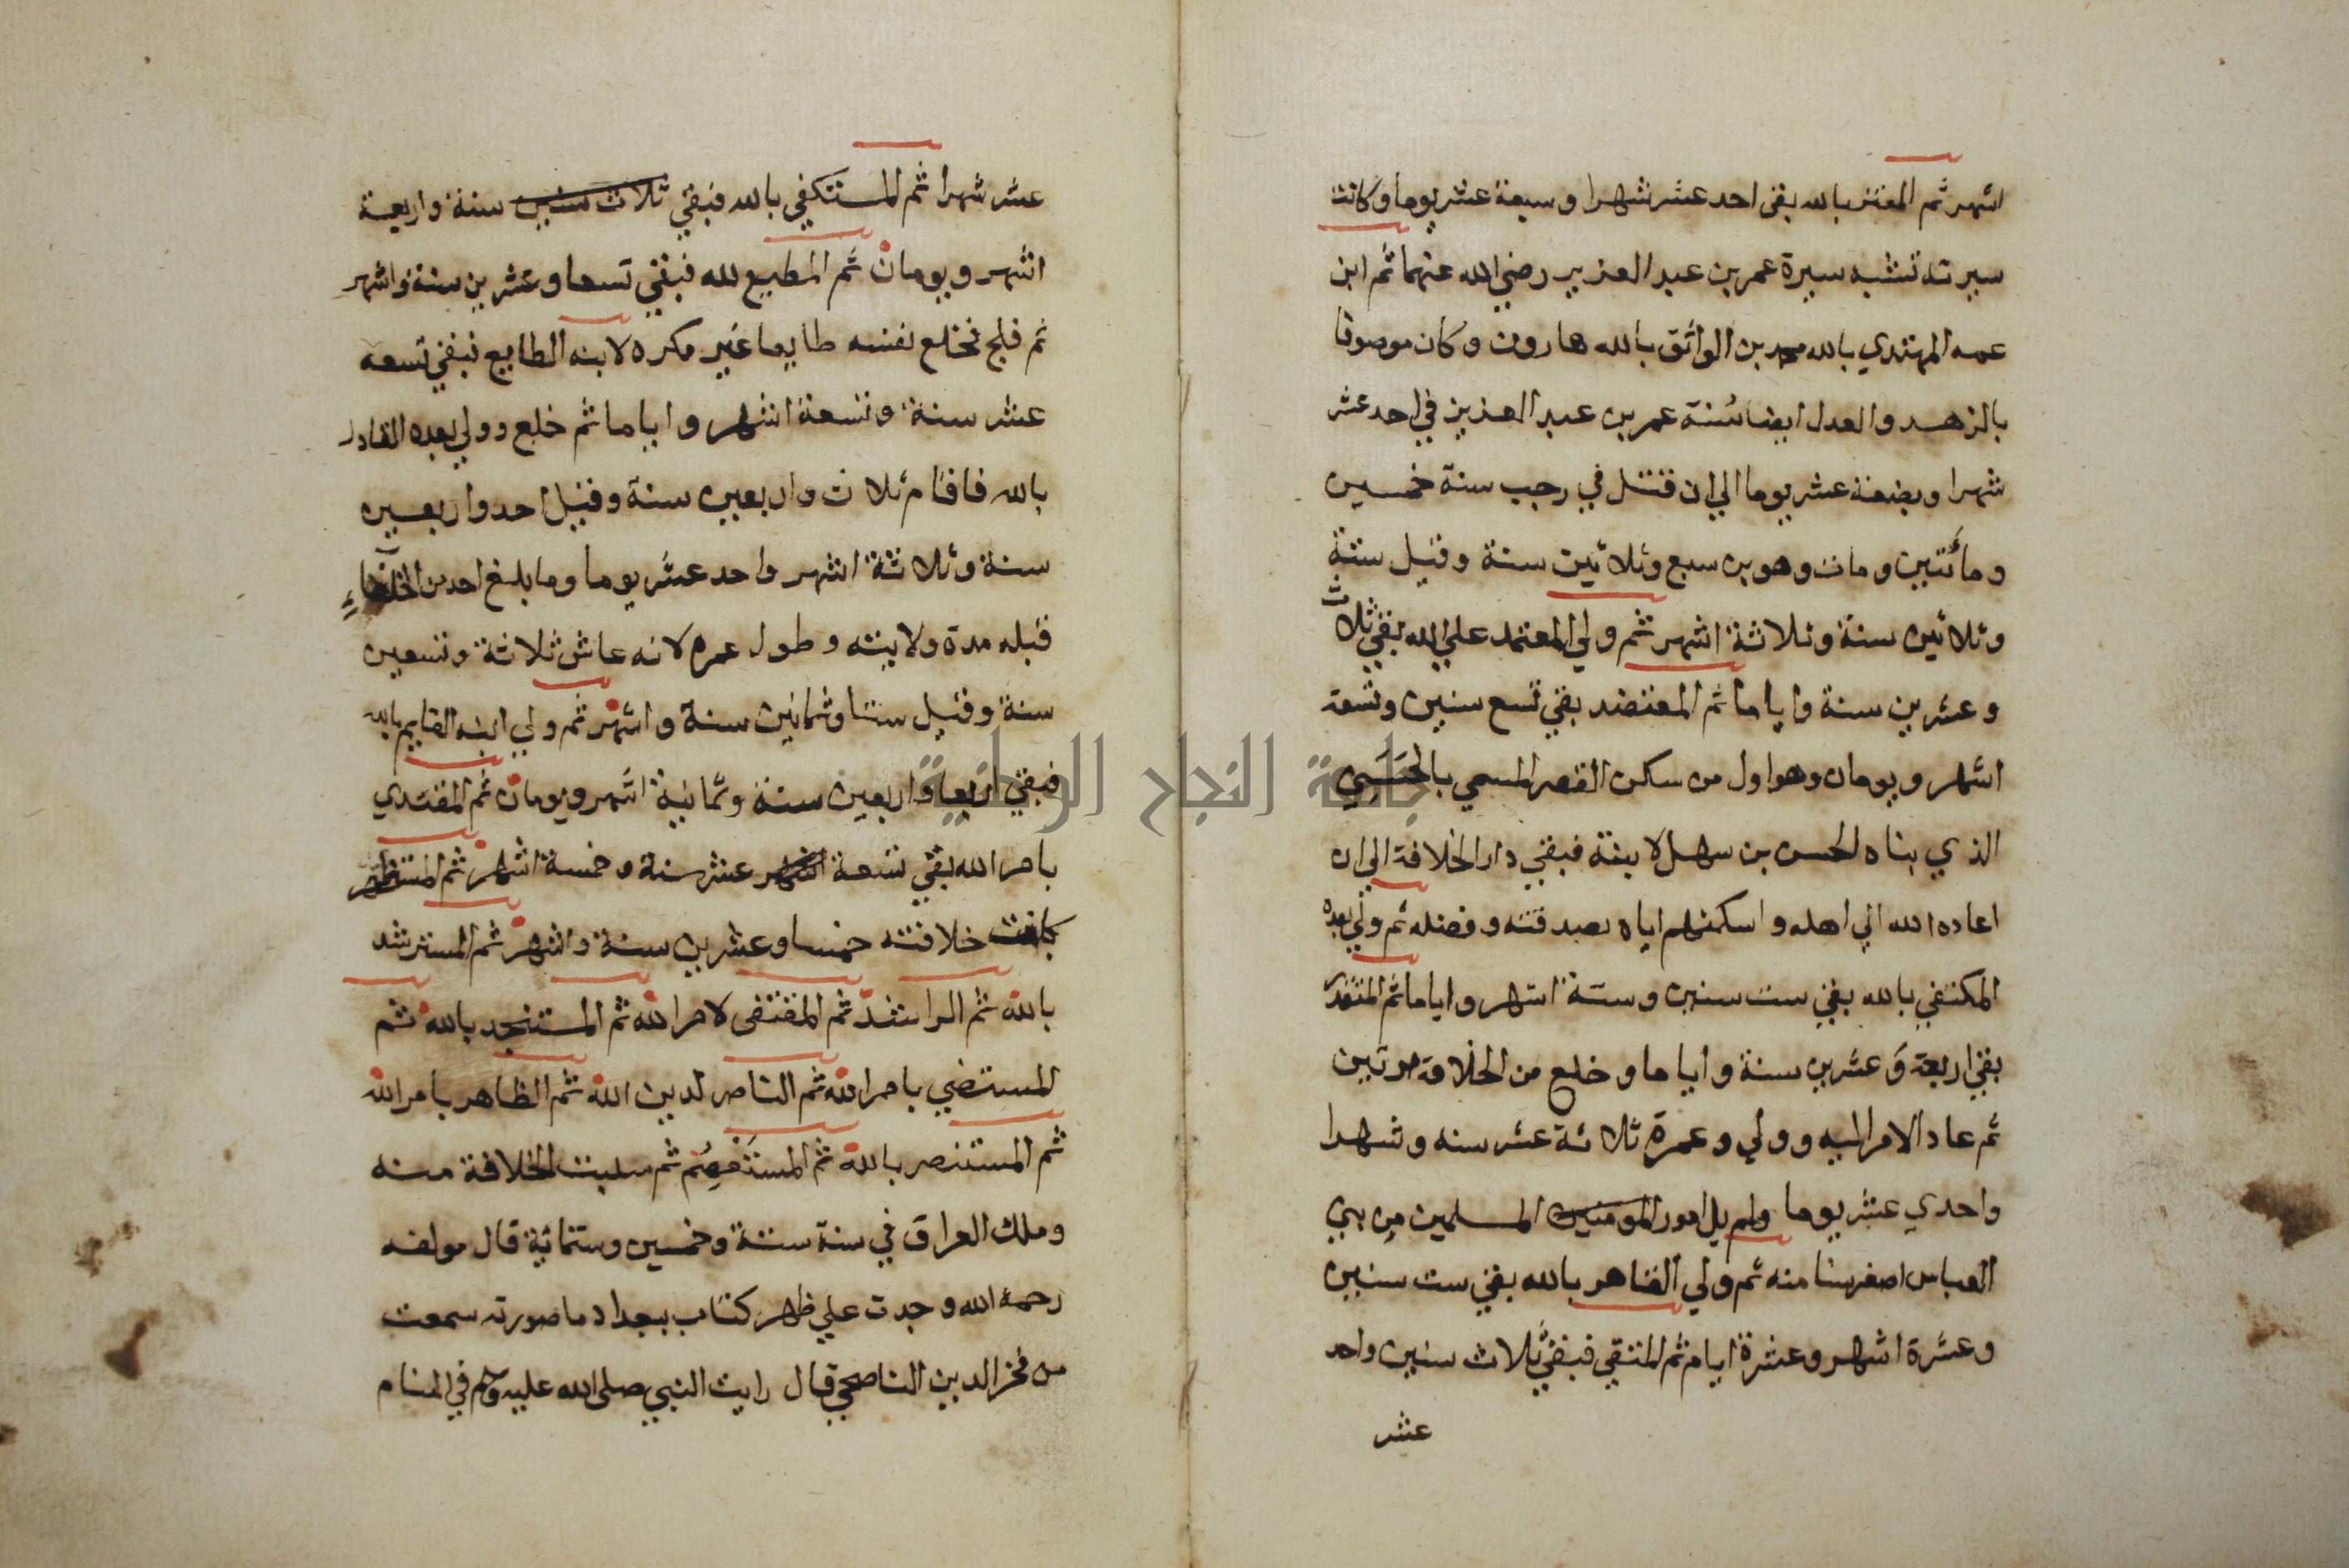 اشهر ثم المعتز بالله بقى احد عشر شهرا وسبعة عشر يوما وكانت
سيرته تشبه سيرة عمر بن عبد العزيز رضي الله عنهما ثم ابن
عمه المهتدي بالله محمد بن الواثق بالله هارون وكان موصوفا
بالزهد والعدل ايضا سنة عمر بن عبد العزيز في احد عشر
شهرا وبضعة عشر يوما الي ان قتل في رجب سنة خمسين
ومأتين ومات وهو بن سبع وثلاثين سنة وقيل ستة
وثلاثين سنة وثلاثة اشهر ثم ولي المعتمد علي الله بقي ثلاث
وعشرين سنة واياما ثم المعتضد بقي تسع سنين وتسعة
اشهر ويومان وهو اول من سكن القصر المسمي بالحسني
الذي بناه الحسن بن سهل لابنة فبقي دار الخلافة الي ان
اعاده الله الي اهله واسكنهم اياه بصدقته وفضله ثم ولي بعده
المكتفي بالله بقي ست سنين وستة اشهر واياما ثم المقتدر
بقي اربعة وعشرين سنة واياما وخلع من الخلافة مرتين
ثم عاد الامر اليه وولي وعمره ثلاثة عشر سنه وشهرا
واحدي عشر يوما ولم يل امور المومنين المسلمين من بني
العباس اصغر سنا منه ثم ولي القاهر بالله بقي ست سنين
وعشرة اشهر وعشرة ايام ثم المتقي فبقي ثلاث سنين واحد
عشر
عشر شهرا ثم المستكفي بالله فبقي ثلاث سنين سنة واربعة
اشهر ويومان ثم المطيع لله فبقي تسعا وعشرين سنة واشهر
ثم فلج فخلع نفسه طايعا غير مكره لابنه الطايع فبقي تسعه
عشر سنة وتسعة اشهر واياما ثم خلع وولي بعده القادر
بالله فاقام ثلاث واربعين سنة وقيل احد واربعين
سنة وثلاثة اشهر واحد عشر يوما وما بلغ احد من الخلفاء
قبله مدة ولايته وطول عمره لانه عاش ثلاثة وتسعين
سنة وقيل ستا وثمانين سنة واشهر ثم ولي ابنه القايم بالله
فبقي اربعا واربعين سنة وثمانية اشهر ويومان ثم المقتدي
بامر الله بقي تسعة اشهر عشر سنة وخمسة اشهر ثم المستظهر
كانت خلافته خمسا وعشرين سنة واشهر ثم المسترشد
بالله ثم الراشد ثم المقتفى لامر الله ثم المستنجد بالله ثم
المستضي بامر الله ثم الناصر لدين الله ثم الظاهر بامر الله
ثم المستنصر بالله ثم المستعصم ثم سلبت الخلافة منه
وملك العراق في سنة ستة وخمسين وستمائة قال مولفه
رحمة الله وجدت علي ظهر كتاب ببغداد ما صورته سمعت
من فخر الدين الناصحي قال رايت النبي صلى الله عليه وسلم في المنام
جامعة النجاح الوطنية